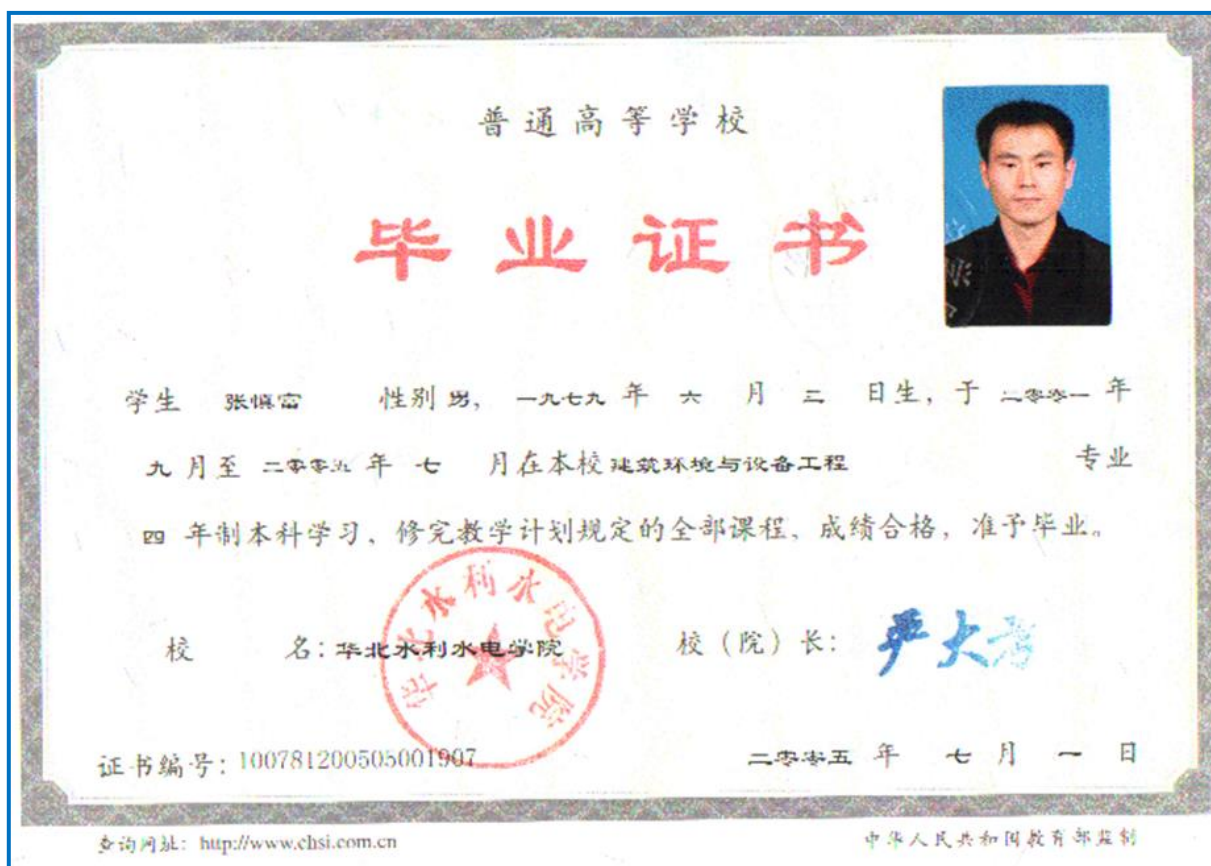 普通高等学校
毕业证书
学生 张慎富 性别 男, 一九七九 年 六 月 三 日生, 于 二零零一 年
九 月至 二零零五 年 七 月在本校 建筑环境与设备工程 专业
四 年制本科学习、修完教学计划规定的全部课程、成绩合格, 准予毕业。
校 名: 华北水利水电学院 校（院）长: 严大考
华北水利水电学院
证书编号: 100781200505001907 二零零五 年 七 月 一 日
查询网址: http://www.chsi.com.cn 中华人民共和国教育部监制